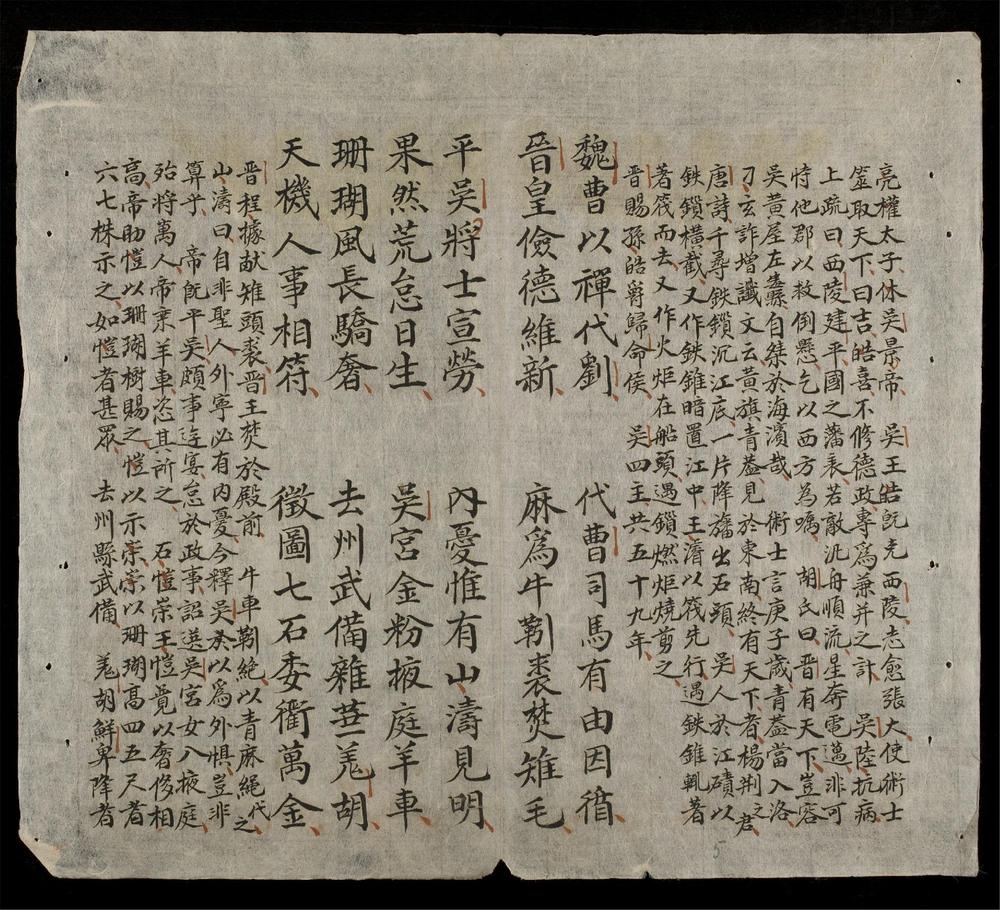 亮權太子休吳景帝　吳王皓既克西陵志愈張大使術士
筮取天下曰吉皓喜不修德政專爲兼并之計　吳陸抗病
上疏曰西陵建平國之藩表若敵汎舟順流星奔電邁非可
恃他郡以救倒懸乞以西方為囑　胡氏曰晋有天下豈容
吳黄屋左纛自桀於海濱哉　術士言庚子歲青葢當入洛
刁玄詐增讖文云黄旗青葢見於東南終有天下者楊荆之君
唐詩千尋鉄鎖沉江底一片降旛出石頭　吳人於江磧以
鉄鎖横截又作鉄錐暗置江中王濬以筏先行遇鉄錐輒著
著筏而去又作火炬在船頭遇鎖燃炬燒剪之
晋賜孫皓爵歸命侯　吳四主共五十九年
魏曹以禪代劉　代曹司馬有由因循
晉皇儉德維新　麻爲牛靷裘焚雉毛
平吳將士宣勞　內憂惟有山濤見明
果然荒怠日生　吳宮金粉掖庭羊車
珊瑚風長驕奢　去州武備雜芸羗胡
天機人事相符　徵圖七石委衢萬金
晋程據献雉頭裘晋王焚於殿前　牛車靷絶以青麻繩代之
山濤曰自非聖人外寧必有内憂今釋吳爲外懼豈非
算乎　帝既平吳頗事遊宴怠於政事詔選吳宮女入掖庭
殆將萬人帝乗羊車恣其所之　石愷崇王愷競以奢侈相
高帝助愷以珊瑚樹賜之愷以示崇崇以珊瑚高四五尺者
六七株示之如愷者甚眾　去州縣武備　羗胡鮮卑降者